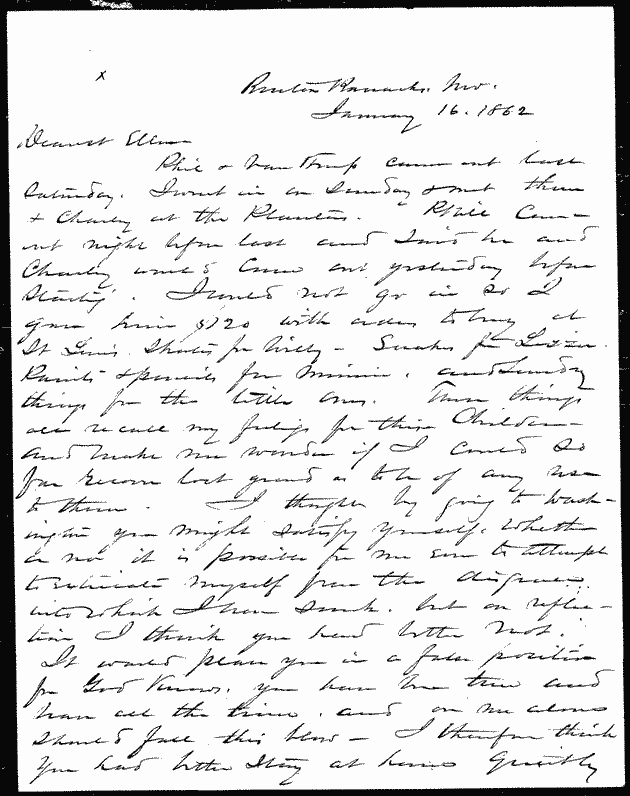 x
Benton Barracks. Mo.
January 16. 1862
Dearest Ellen
Phil & Van Trump came out last
Saturday. I went in on Sunday & met them
& Charley at the Planters. Phil Came
out night before last and said he and
Charley would Come out yesterday before
starting. I could not go in so I
gave him $120 with orders to buy at
St Louis. Skates for Willy - for Lizzie.
Paints & pencils for Minnie. and Sunday
things for the little ones. These things
all recall my feelings for these Children
and make me wonder if I could so
far recover lost ground as to be of any use
to them. I thought by going to Wash-
ington you might satisfy yourself. Whether
or not it is possible for me even to attempt
to extricate myself from the disgrace
into which I have sunk. but on reflec-
tion I think you had better not.
It would place you in a false position
for God Knows. you have been true and
have all the time. and on me alone
should fall this blow - I therefore think
you had better Stay at home Quietly